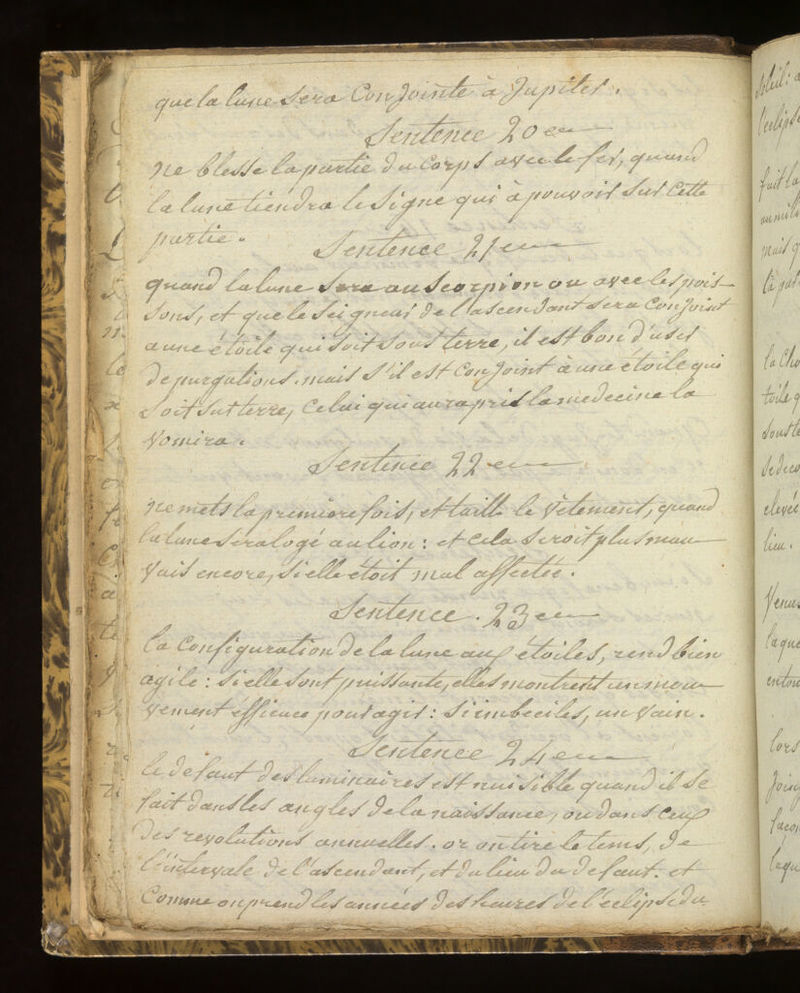 que la lune sera Conjointe à Jupiter.
Sentence 20eme
ne blesse la partie du Corps avec le fer, quand
la lune tiendra le signe qui a pouvoir sur Cette
partie.
Sentence 21eme
quand la lune sera au Scorpion ou avec les pois-
sons, et que le seigneur de l'ascendant sera Conjoint
a une étoile qui soit sous terre, il est bon d'user
de purgations. mais s'il est Conjoint à une étoile qui
soit sur terre, Celui qui aura pris la medecine la
vomira.
Sentence 22eme
ne mets la premiere fois, et taille le vetement, quand
la lune sera logé au lion: et cela seroit plus mau-
vais encore, si elle étoit mal affectée.
Sentence. 23eme
la Configuration de la lune aux étoiles, rend bien
agile: si elle sont puissante, elles montrent un mou-
vement efficace pour agir: si imbeciles, un vain.
Sentence 24eme
le defaut des luminaires est nuisible quand il se
fait dans les angles de la naissance, ou dans Ceux
des revolutions annuelles. or on tire le tems, de
l'intervale de l'ascendant, et du lieu du defaut. et
Comme on prend les années des heures de l'eclipse du